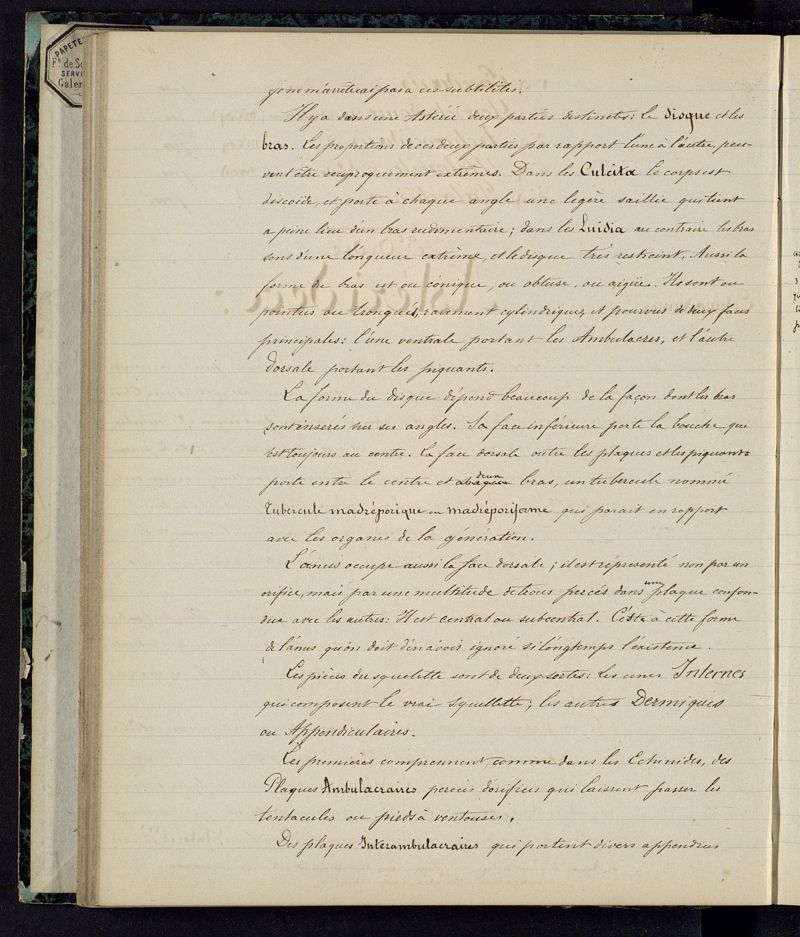 PAPETE
Fs de S
SERV
Galer
je ne m'arrêterai pas à ces subtilités.
Il y a dans une Astérie deux parties distinctes : le disque et les
bras. Les proportions de ces deux parties par rapport l'une à l'autre, peu-
vent être réciproquement extrêmes. Dans les Culcita le corps est
discoïde, et porte à chaque angle une legère saillie qui tient
a peine lieu d'un bras rudimentaire ; dans les Luidia au contraire les bras
sons d'une longueur extrême, et le disque très restreint. Aussi la
forme du bras est ou conique, ou obtuse, ou aigüe. Ils sont ou
pointus ou tronqués, rarement cylindriques, et pourvus de deux faces
principales : l'une ventrale portant les Ambulacres, et l'autre
dorsale portant les piquants.
La forme du disque dépend beaucoup de la façon dont les bras
sont insérés sur ses angles. Sa face inférieure porte la bouche qui
est toujours au centre. la face dorsale outre les plaques et les piquants
porte entre le centre et deux bras, un tubercule nommé
Tubercule madréporique ou madréporiforme qui parait en rapport
avec les organes de la génération.
L'anus occupe aussi la face dorsale ; il est réprésenté non par un
orifice, mais par une multitude de trous percés dans une plaque confon-
due avec les autres : Il est central ou subcentral. C'est à cette forme
de l'anus qu'on doit d'en avoir ignoré si longtemps l'existence.
Les pièces du squelette sont de deux sortes. Les unes Internes
qui composent le vrai squellette ; les autres Dermiques
ou Appendiculaires.
Les premières comprennent, comme dans les Echinides, des
Plaques Ambulacraires percées d'orifices qui laissent passer les
tentacules ou pieds à ventouses.
Des plaques Interambulacraires qui portent divers appendices